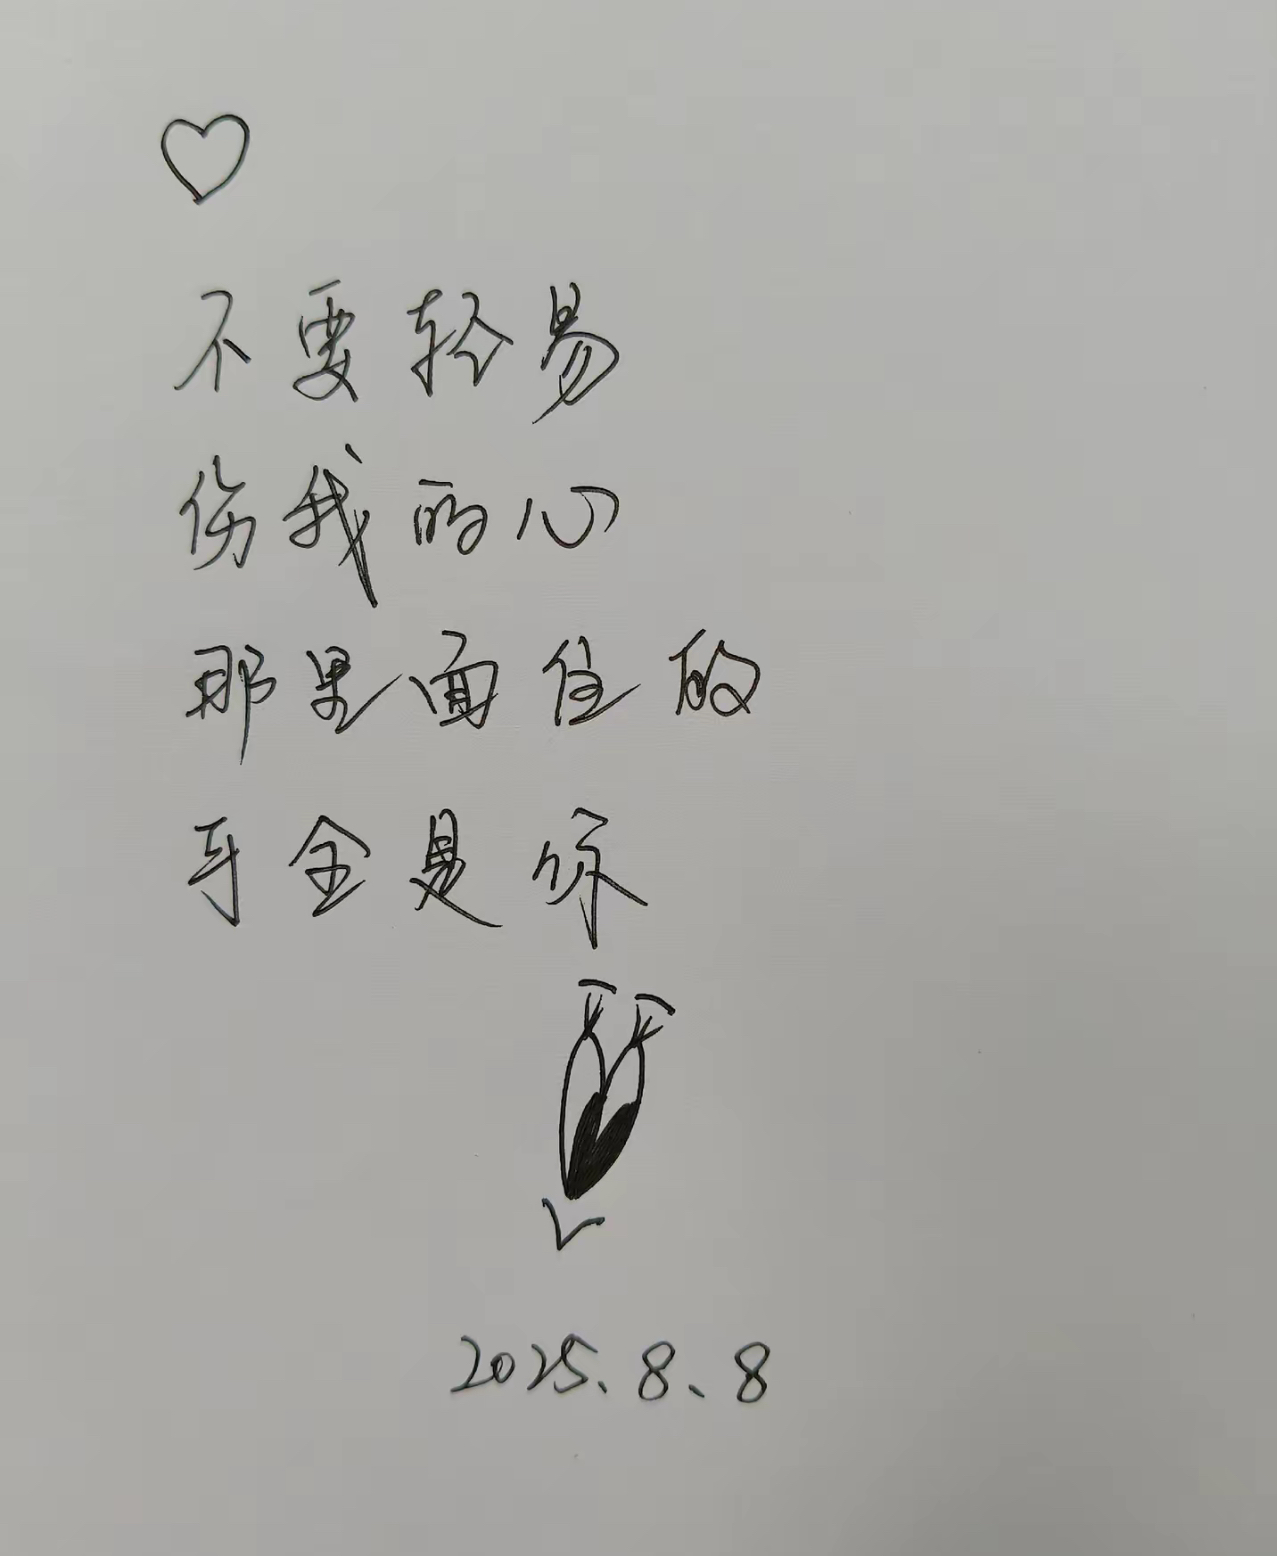 不要轻易
伤我的心
那里面住的
可全是你
2025.8.8